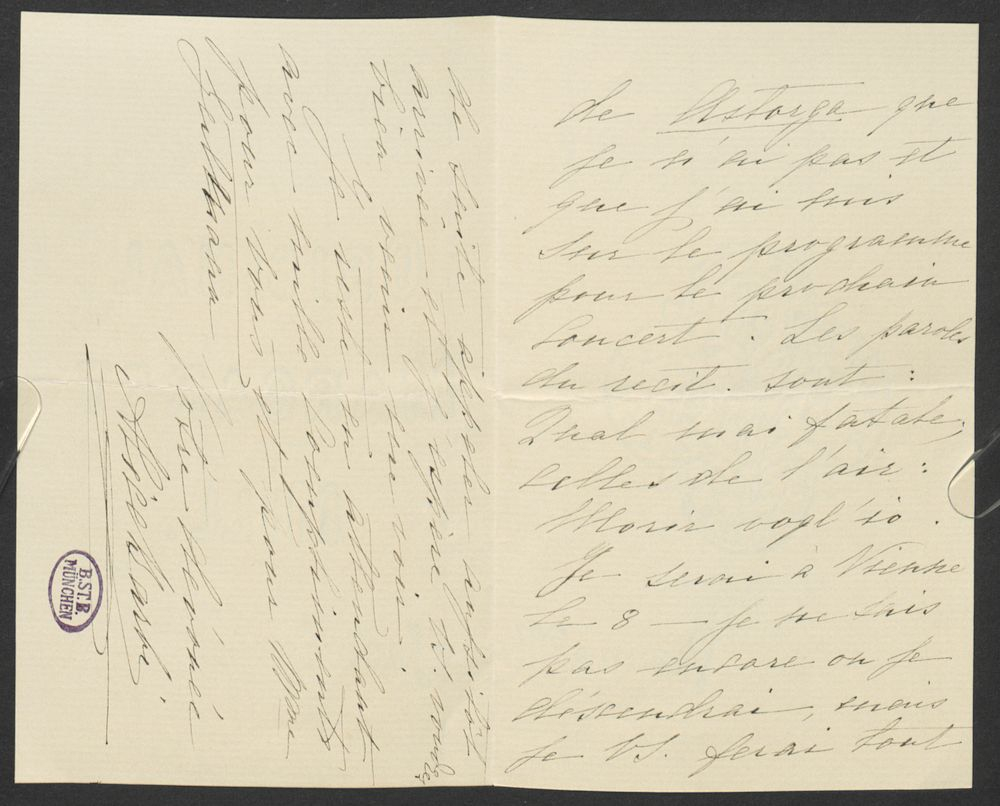 de Astorga que
je n'ai pas et
que j'ai mis
sur le programme
pour le prochain
Concert. Les paroles
du récit. sont:
Qual mai fatale,
celles de l'air:
Morir vogl'io.
Je serai à Vienne
le 8 — je ne sais
pas encore ou je
déscendrai, mais
je Vs. ferai tout
de suite appeler aussitôt
arrivée et j'éspère V. voudrez
bien venir me voir.
Je reste en attendant
avec mille compliments
pour Vous et pour Mme
Gallmann
Votre dévouée
Alice Barbi
B.ST.B.
MÜNCHEN